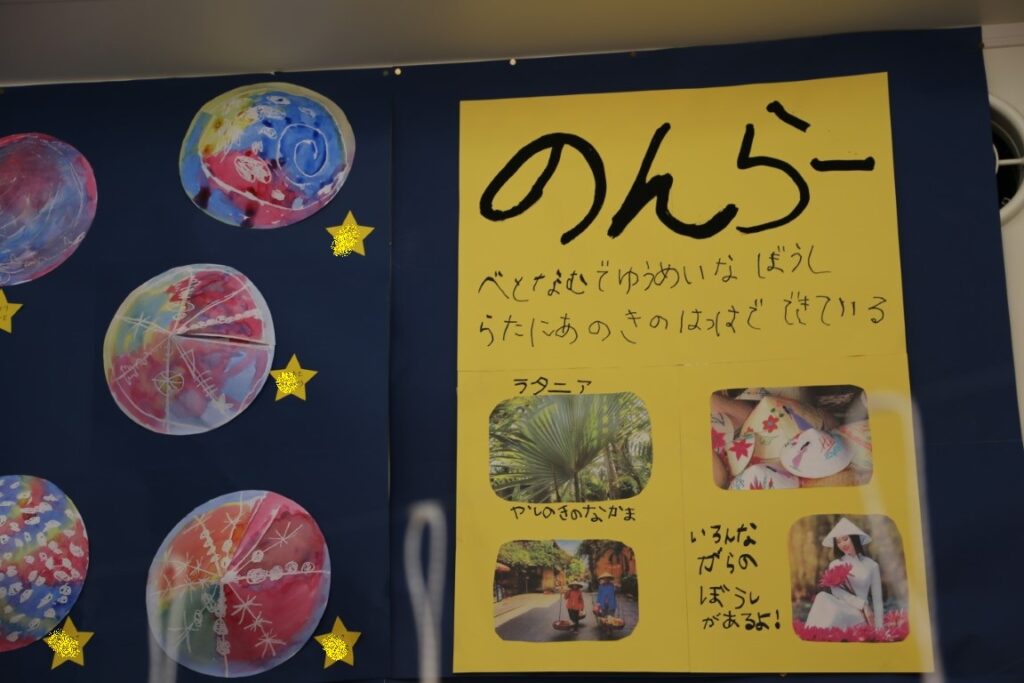 のんらー
べとなむでゆうめいな ぼうし
らたにあのきのはっぱで できている
ラタニア
やしのきのなかま
いろんな
がらの
ぼうし
があるよ!